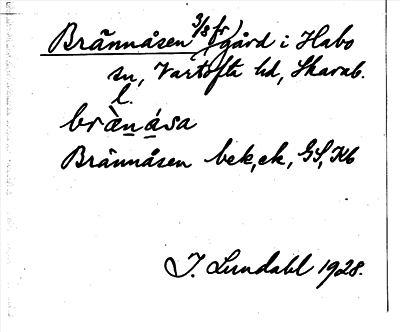 Brännåsen 3/8 fr) gård i Habo
sn, Vartofta hd, Skarab.
l.
brὲnása
Brännåsen bek,ek, GS, Kb
I. Lundahl 1928.